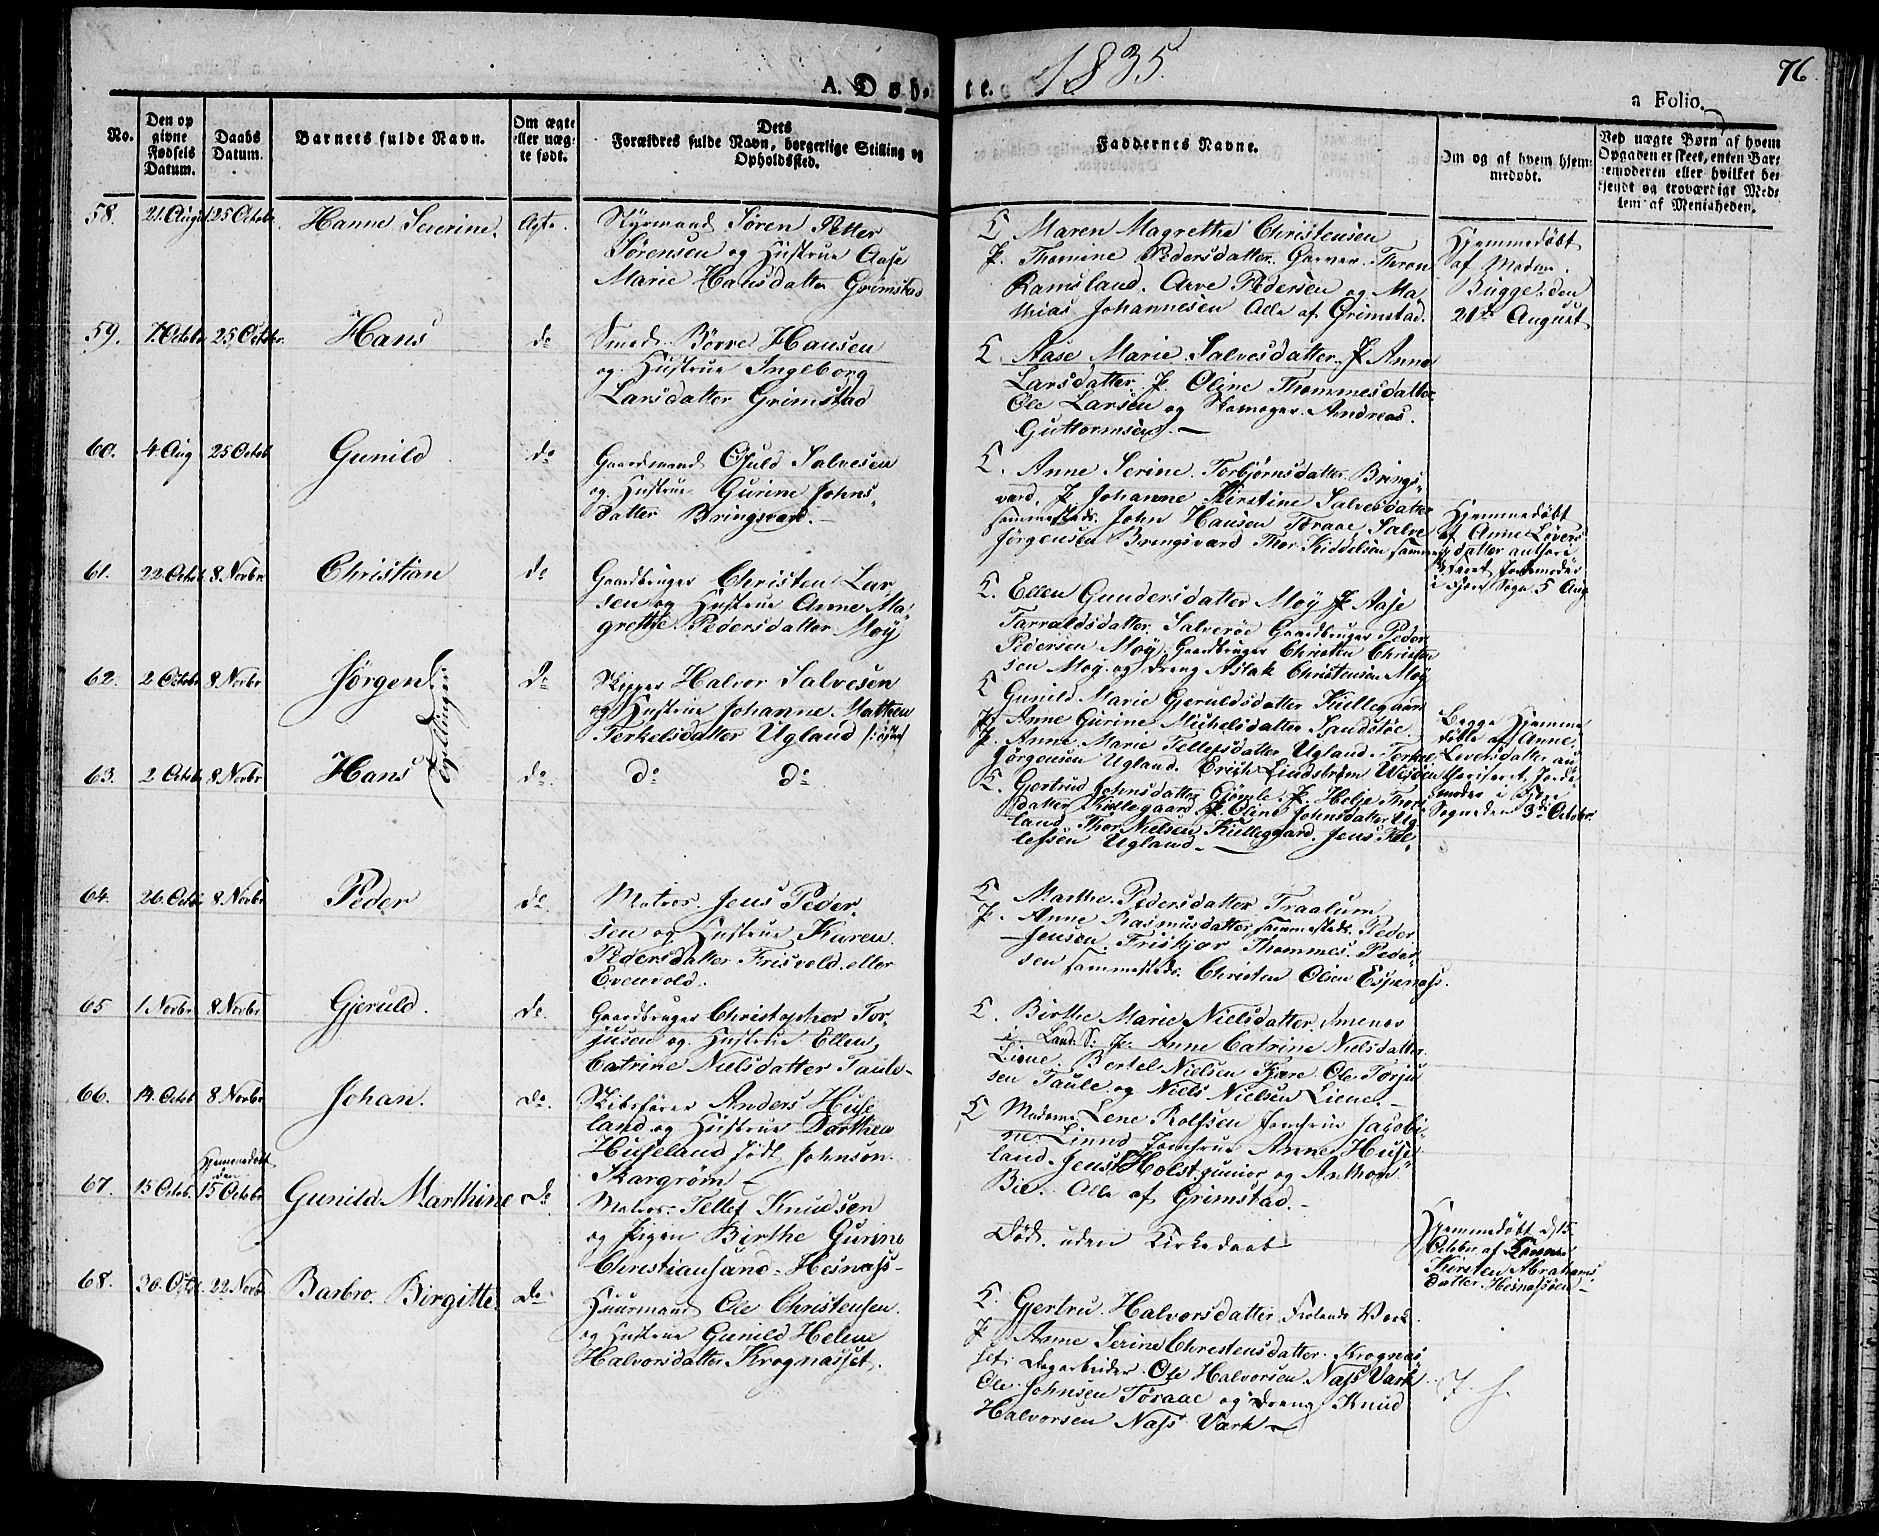 1835.
76.
A. Døb-
te.
a Folio.
No.
Den op
givne
Fødsels
Datum.
Daabs
Datum.
Barnets fulde Navn.
Om ægte
eller uæg-
te født.
Dets
Forældres fulde Navn, borgerlige Stilling og
Opholdssted.
Faddernes Navne.
Om og af hvem hjem-
medøbt.
Ved uægte Børn af hvem
Opgaven er skeet, enten Bar-
nemoderen eller hvilket be-
kjendt og troværdigt Med-
lem af Menigheden.
58. 21 August 25 Octobr Hanne Severine. Ægte.
Styrmand Søren Petter
Sørensen og Hustrue Aase
Marie Hansdatter Grimstad
Maren Magrethe Christensen
P. Thomine Pedersdatter. Garver Thron
Ramsland. Arve Pedersen og Ma
thias Johannesen Alle af Grimstad.
Hjemmedøbt
af Madme
Bugge den
21de August
59. 7 Octobr 25 Octobr. Hans do
Smed Børre Hansen
og Hustrue Ingeborg
Larsdatter Grimstad
Aase Marie Salvesdatter. P. Anne
Larsdatter. P. Oline Thommesdatter
Ole Larsen og Skomager Andreas
Guttormsen. —
60. 4 Aug 25 Octob Gunild do
Gaardmand Osuld Salvesen
og Hustrue Gurine Johns-
datter Bringsvard. —
Anne Serine Torbjørnsdatter Brings-
vard. P. Johanne Kirstine Salvesdatter
sammesteds. John Hansen Toraae Salve
Jørgensen Bringsvard Thor Kiddelsen
Hjemmedøbt
af Anne Lovers
datter
Jordemoder
i Fjære Sogn 5 Aug
61. 22 Octob 8 Novbr Christian do
Gaardbruger Christen Lar-
sen og Hustrue Anne Ma-
grethe Pedersdatter Moÿ
Ellen Gundersdatter Moÿ P. Aase
Tarraldsdatter. Salverøe Gaardbruger Peder
Pedersen Moÿ. Gaardbruger Christen Christen
sen Moy og Dreng Aslak Christensen Moÿ
62. 2 Octobr 8 Novbr Jørgen do
Tvillinger
Skipper Halvor Salvesen
og Hustrue Johanne Mathea
Terkelsdatter Ugland
Gunild Marie Gjeruldsdatter Kiellegaard
P. Anne Gurine Michelsdatter Sandstøe.
P. Anne Marie Tellefsdatter Ugland. Terkel
Jørgensen Ugland. Erich Lindstrøm
Begge Hjemme
døbte af Anne
Loversdatter au
thoriseret Jorde
moder i Fjære
Sogn den 3de October.
63. 2 Octob 8 Novbr Hans do
do do
Gjertrud Johnsdatter Gjømle. P. Helje Thors
datter Kiellegaard P. Oline Johnsdatter Ug
land. Thor Nielsen Kiellegaard. Jens Tel-
lefsen Ugland. —
64. 26 Octb 8 Novbr Peder do.
Matros. Jens Peder-
sen og Hustrue Karen
Pedersdatter Frisvold. eller
Evenvold.
Marthe Pedersdatter Traalum
P. Anne Rasmusdatter sammesteds. Peder
Jensen. Friskjær Thommes. Peder-
sen sammesteds. Christen Olsen Espenæss.
65 1 Novbr 8 Novbr Gjeruld. do.
Gaardbruger Christopher Tor-
jusen og Hustrue Ellen
Catrine Nielsdatter Taule-
Birthe Marie Nielsdatter
i Land. S: P. Anne Catrine Nielsdatter.
Liene. Bertel Nielsen Fjære Ole Torju
sen Taule og Niels Nielsen Liene. —
66. 14 Octob 8 Novbr Johan. do.
Skibsfører Anders Huse
land og Hustrue Dorthea
Huseland født Johnson
Skargrøm —
Madame Lene Rolfsen Jomfrue Jacobi-
ne Linno Jomfrue Anne Huse
land. Jens Holst junior og Anthon
Bie. Alle af Grimstad. —
67. 15 Octob. Hjemmedøbt
den
15 Octobr Gunild Marthine do.
Matros. Tellef Knudsen
og Pigen Birthe Gurine
Christiansand. Hesnæss-
Død uden Kirkedaab
Hjemmedøbt d 15
Octobr af
Kirsten Abrahams
datter. Hesnæssøen —
68. 30 Octb 22 Novbr Barbro. Birgitte. do
Huusmand Ole Christensen
og Hustrue Gunild Helene
Halvorsdatter Krognæsset.
Gjertru. Halvorsdatter. Frolands Værk
P. Anne Serine Christensdatter. Krognæs
set. Dagarbeider Ole Halvorsen Næss Værk
Ole Johnsen Toraae og Dreng Knud
Halvorsen Næss Værk —